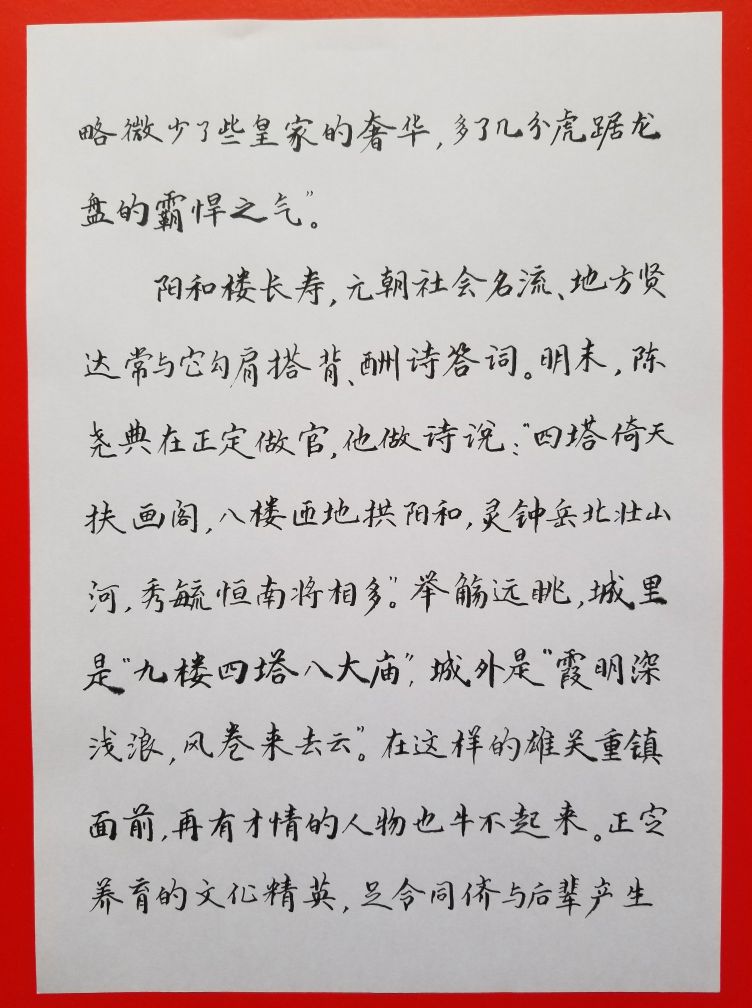 略微少了些皇家的奢华,多了几分虎踞龙
盘的霸悍之气”。
阳和楼长寿,元朝社会名流、地方贤
达常与它勾肩搭背、酬诗答词。明末,陈
尧典在正定做官,他做诗说:“四塔倚天
扶画阁,八楼匝地拱阳和,灵钟岳北壮山
河,秀毓恒南将相多”。举觞远眺,城里
是“九楼四塔八大庙”,城外是“霞明深
浅浪,风卷来去云”。在这样的雄关重镇
面前,再有才情的人物也牛不起来。正定
养育的文化精英,足令同侪与后辈产生